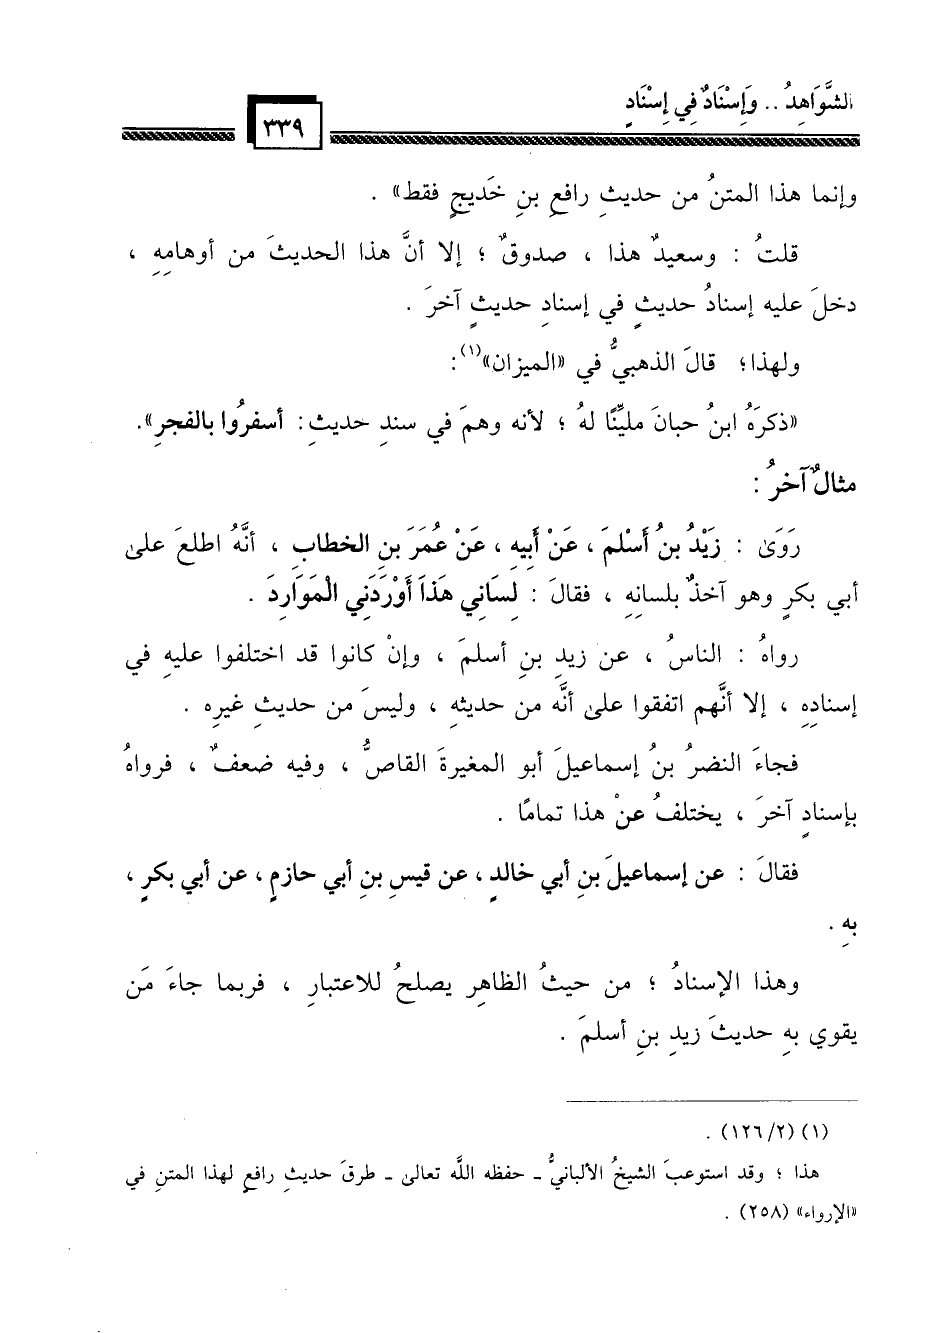 الشَّوَاهِدُ .. وَإِسْنَادٌ فِي إِسْنَادٍ
٣٣٩
وإنما هذا المتنُ من حديثِ رافعِ بنِ خَديجٍ فقط» .
قلتُ : وسعيدٌ هذا ، صدوقٌ ؛ إلا أنَّ هذا الحديثَ من أوهامِهِ ،
دخلَ عليه إسنادُ حديثٍ في إسنادِ حديثٍ آخرَ .
ولهذا؛ قالَ الذهبيُّ في «الميزان»(١):
«ذكرَهُ ابنُ حبانَ مليِّنًا لهُ ؛ لأنه وهمَ في سندِ حديثِ: أسفرُوا بالفجرِ».
مثالٌ آخرُ :
رَوَىٰ : زَيْدُ بنُ أَسْلَمَ ، عَنْ أَبِيهِ ، عَنْ عُمَرَ بنِ الخطابِ ، أنَّهُ اطلعَ علىٰ
أبي بكرٍ وهو آخذٌ بلسانِهِ ، فقالَ : لِسَانِي هَذَا أَوْرَدَنِي الْمَوَارِدَ .
رواهُ : الناسُ ، عن زيدِ بنِ أسلمَ ، وإنْ كانوا قد اختلفوا عليهِ في
إسنادِهِ ، إلا أنَّهم اتفقوا علىٰ أنَّه من حديثهِ ، وليسَ من حديثِ غيرِه .
فجاءَ النضرُ بنُ إسماعيلَ أبو المغيرةَ القاصُّ ، وفيه ضعفٌ ، فرواهُ
بإسنادٍ آخرَ ، يختلفُ عنْ هذا تمامًا .
فقالَ : عن إسماعيلَ بنِ أبي خالدٍ ، عن قيسِ بنِ أبي حازمٍ ، عن أبي بكرٍ ،
بهِ .
وهذا الإسنادُ ؛ من حيثُ الظاهرِ يصلحُ للاعتبارِ ، فربما جاءَ مَن
يقوي بهِ حديثَ زيدِ بنِ أسلمَ .
(١) (٢/ ١٢٦) .
هذا ؛ وقد استوعبَ الشيخُ الألبانيُّ ـ حفظه اللَّه تعالىٰ ـ طرقَ حديثِ رافعٍ لهذا المتنِ في
«الإرواء» (٢٥٨) .